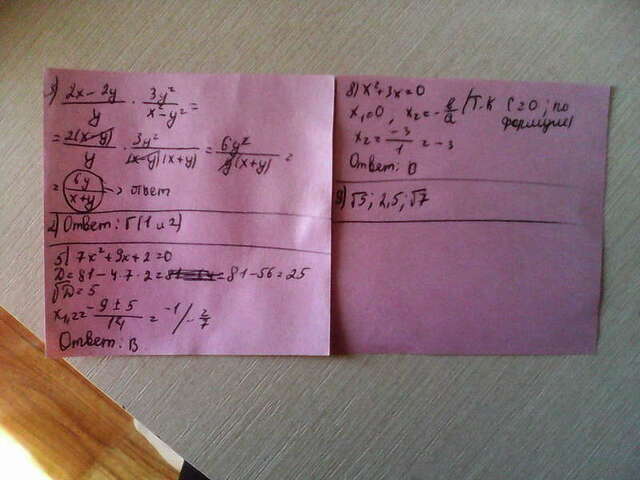 3) (2x-2y)/y · 3y²/(x²-y²) =
= 2(x-y)/y · 3y²/((x-y)(x+y)) = 6y²/(y(x+y)) =
= 6y/(x+y) -> ответ
2) Ответ: Г (1 и 2)
5) 7x²+9x+2=0
D=81-4·7·2= =81-56=25
√D=5
x1,2= (-9±5)/14 = -1/-2/7
Ответ: В
8) x²+3x=0
x1=0, x2=-в/a (т.к с=0; по
формуле)
x2= -3/1 = -3
Ответ: В
9) √5; 2,5; √7